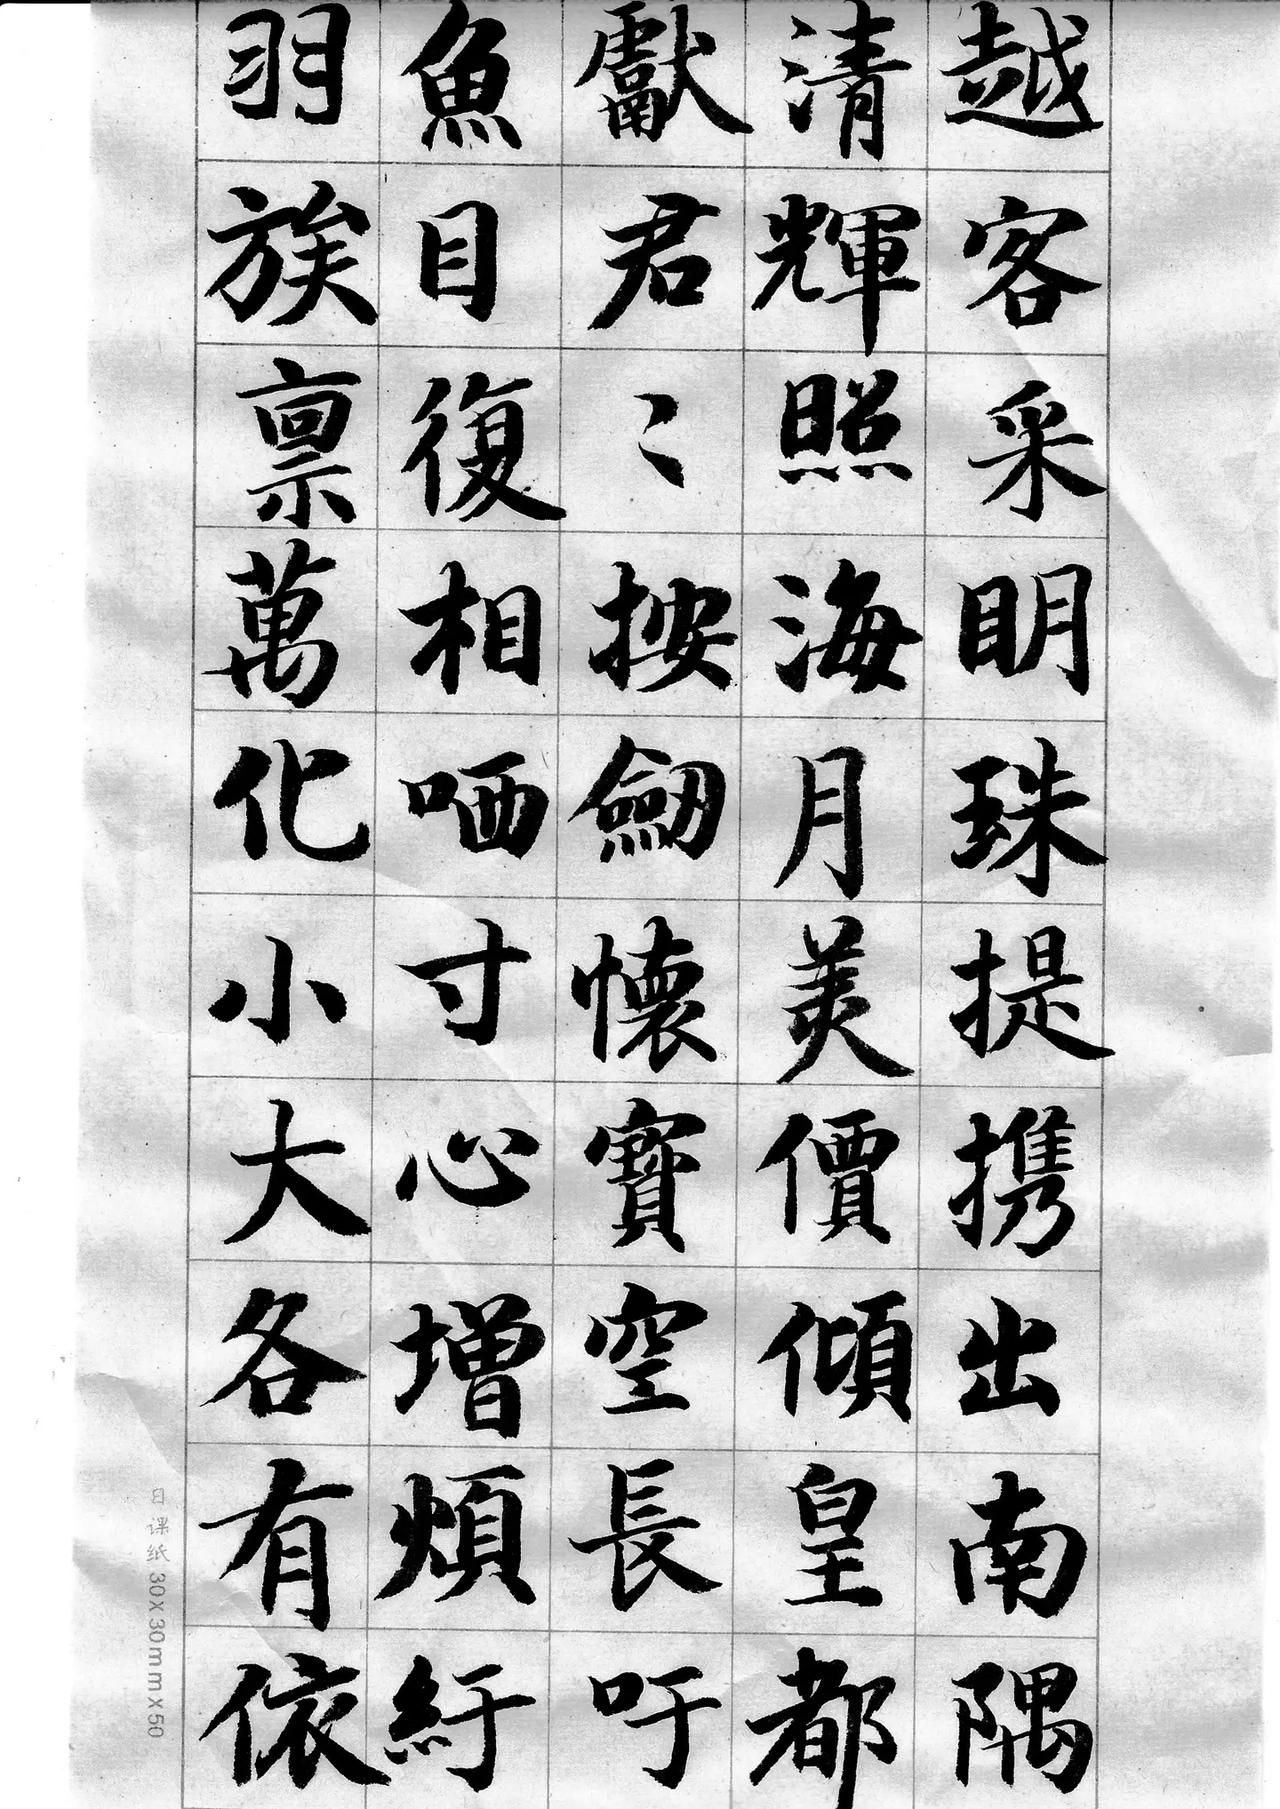 越客采明珠提携出南隅
清輝照海月美價傾皇都
獻君〻按劒懷寶空長吁
魚目復相哂寸心增煩紆
羽族禀萬化小大各有依
日课纸 30x30mmx50